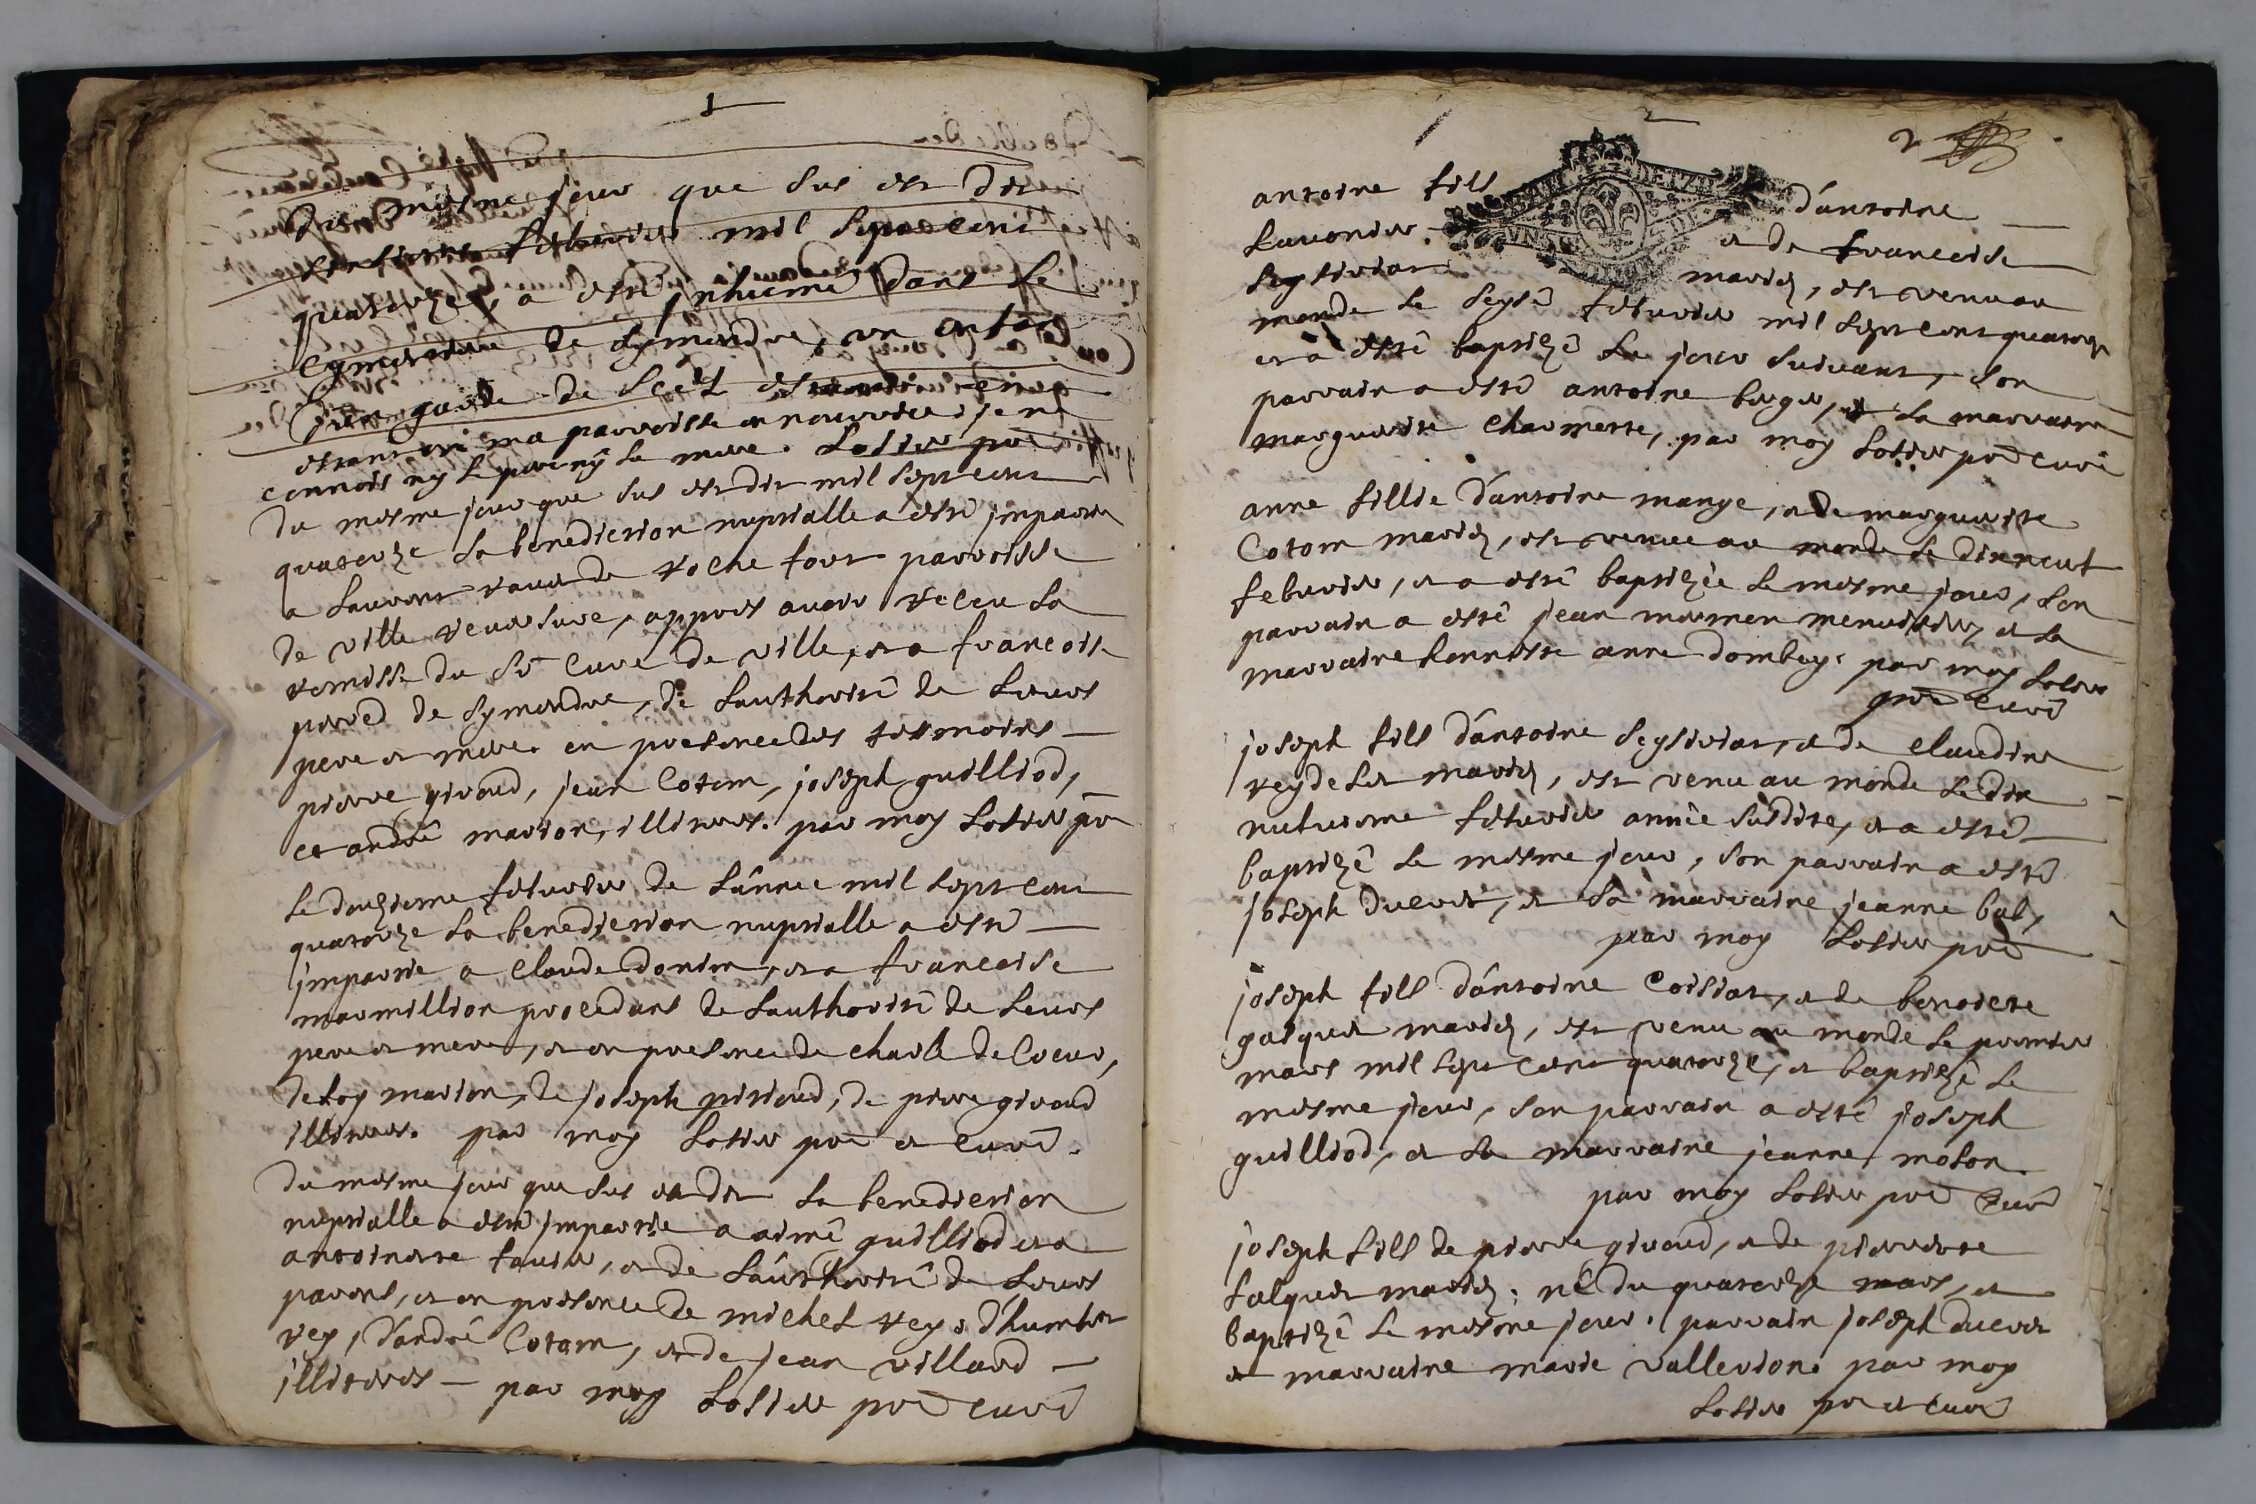 1
Du mesme jour que sus est dit
febvrier mil sept cent
quatorze, a esté inhumé dans le
cymetiere de symandre, un enfan
en garde de
estant en ma parroisse en nourrice, je ne
connois ny le pere ny la mere. Lotier pre
du mesme jour que sus est dit mil sept cent
quatorze la benediction nuptialle a esté impartie
a Laurent de roche fort parroisse
de ville reversure, appres avoir receu la
remisse du sr curé de ville, et a francoise
perret de symandre, de lauthorité de leurs
pere et mere. en presence des tesmoins
pierre giroud, jean Cotam, joseph guilliod,
et andré marion, illiteres. par moy Lotier pre
Le douzieme febvrier de l'année mil sept cent
quatorze la benediction nuptialle a esté
impartie a Claude donim, et a francoise
marmillion procedans de lauthorité de leurs
pere et mere, et en presence de charle de Coeur,
de loy marion, de joseph pitioud, de pierre giroud
illiteres. par moy Lotier pre et curé.
Du mesme jour que sus est dit la benediction
nuptialle a esté impartie a aimé guilliod et a
antoinette favier, et de l'authorité de leurs
parens, et en presence de michel rey, d'humber
rey, d'andré Cotam, et de jean villard
illiteres par moy Lotier pre curé
2
2
antoine fils d'antoine
Lavorier et de francoise
seytivier mariés, est venu au
monde le seyze febvrier mil sept cent quatorze
et a esté baptizé le jour suivant, son
parrain a esté antoine beger, et la marraine
marguerite charmette, par moy Lotier pre curé
anne fillie d'antoine mange, et de marguerite
Cotam mariés, est venue au monde le dixneuf
febvrier, et a esté baptizée le mesme jour, son
parrain a esté jean mermen menuisier, et la
marraine honneste anne dombey. par moy Lotier
pre curé
joseph fils d'antoine seytivier, et de claudine
reydelet mariés, est venu au monde le dix
nutieme febvrier année susdite, et a esté
baptizé le mesme jour, son parrain a esté
joseph ducret, et la marraine jeanne bal,
par moy Lotier pre
joseph fils d'antoine Coisiat, et de benoiete
gasquet mariés, est venu au monde le premier
mars mil sept cent quatorze, et baptizé le
mesme jour, son parrain a esté joseph
guilliod, et la marraine jeanne moson.
par moy Lotier pre Curé
joseph fils de pierre giroud, et de pierrette
falquet mariés, né du quatorze mars, et
baptizé le mesme jour. parrain joseph ducret
et marraine marie vallerion. par moy
Lotier pre et curé